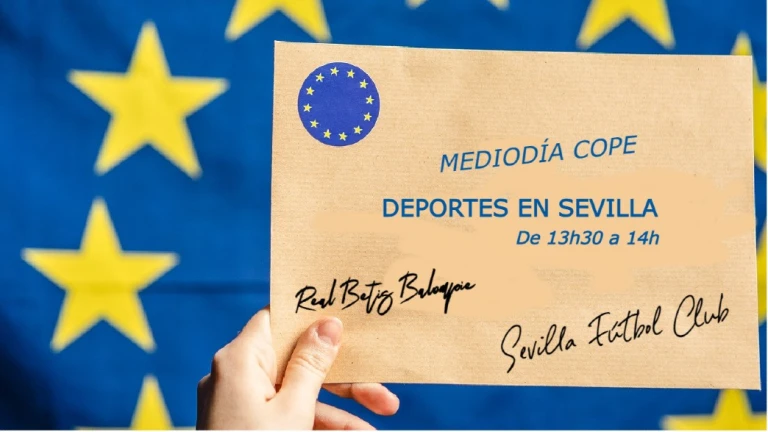 MEDIODÍA COPE
DEPORTES EN SEVILLA
De 13h30 a 14h
Real Betis Balompie
Sevilla Fútbol Club